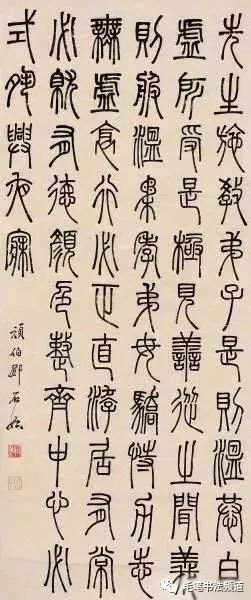 先生施教弟子是則溫恭自
虛所受是極見善從之聞義
則服溫柔孝弟毋驕恃力志
無虛衺行必正直游居有常
必就有德顏色整齊中心必
式夙興夜寐
頑伯鄧石如
毛笔书法频道